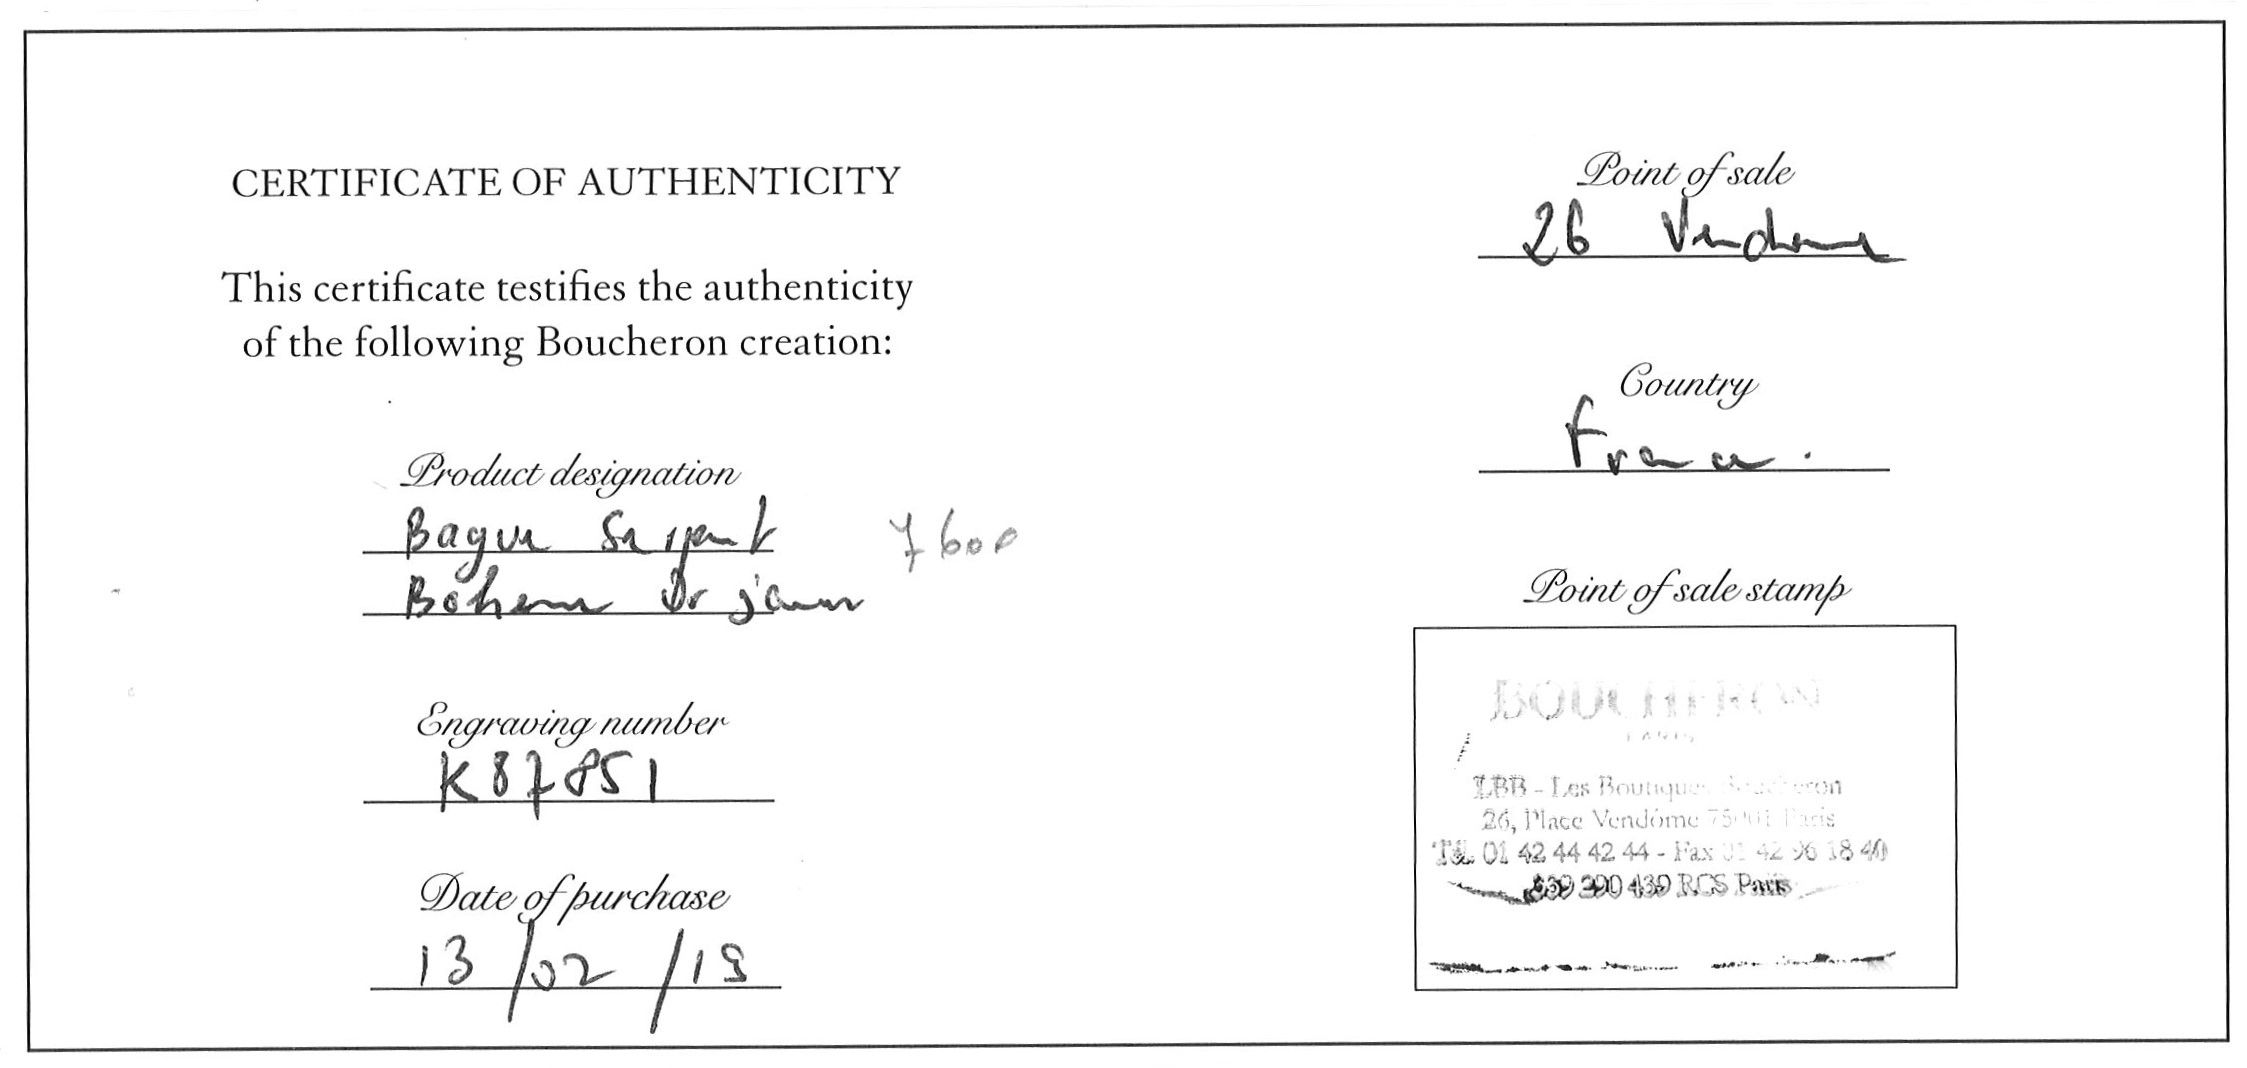 CERTIFICATE OF AUTHENTICITY
This certificate testifies the authenticity
of the following Boucheron creation:
Product designation
Bague Serpent 7600
Boheme Or jaune
Engraving number
K87851
Date of purchase
13/02/19
Point of sale
26 Vendome
Country
France.
Point of sale stamp
BOUCHERON
PARIS
LBB - Les Boutiques Boucheron
26, Place Vendôme 75001 Paris
Tél. 01 42 44 42 44 - Fax 01 42 96 18 40
339 390 439 RCS Paris